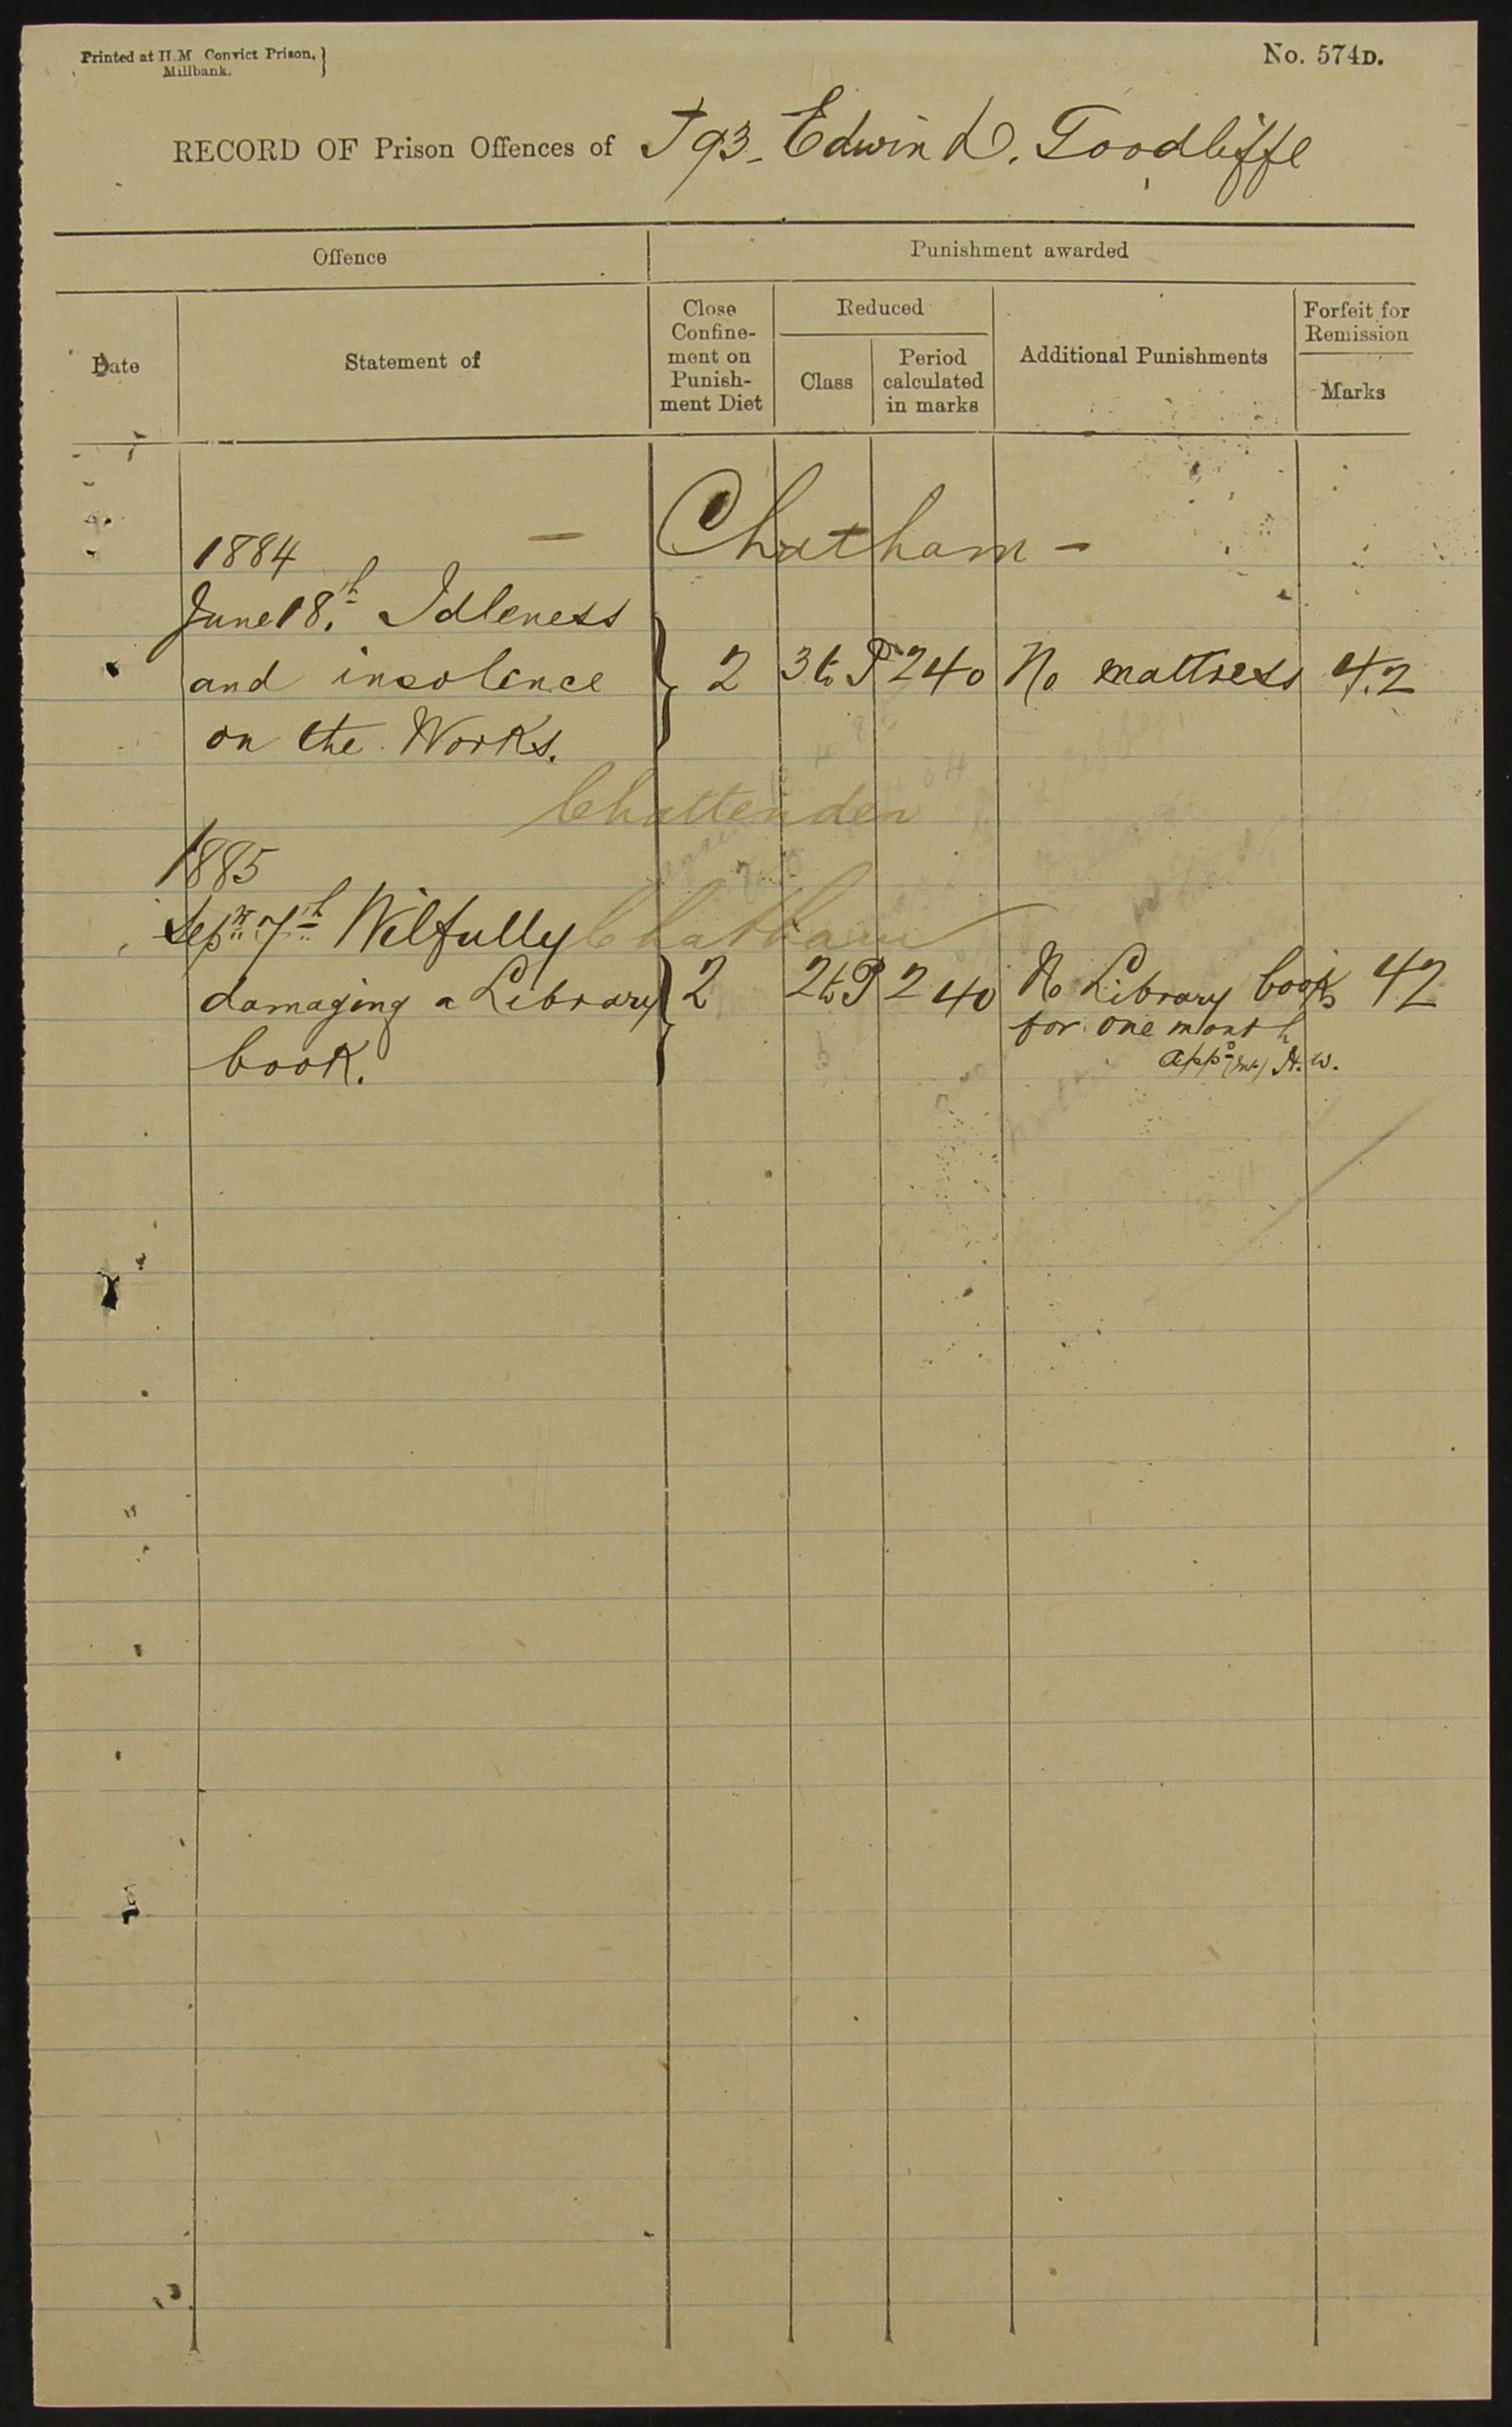 Printed at H.M Convict Prison, }
Millbank.
No. 574D.
RECORD OF Prison Offences of J 93 - Edwin D. Toodliffe
Offence
Punishment awarded
Date
Statement of
Close
Confine-
ment on
Punish-
ment Diet
Reduced
Class
Period
calculated
in marks
Additional Punishments
Forfeit for
Remission
Marks
— Chatham —
1884
June 18.th Idleness
and insolence } 2 3 to P 240 No mattress 42
on the Works.
Chattenden
1885
Sepr 7th Wilfully Chatham
damaging a Library } 2 2 to P 240 No Library books 42
for one month
book.
appd H.W.